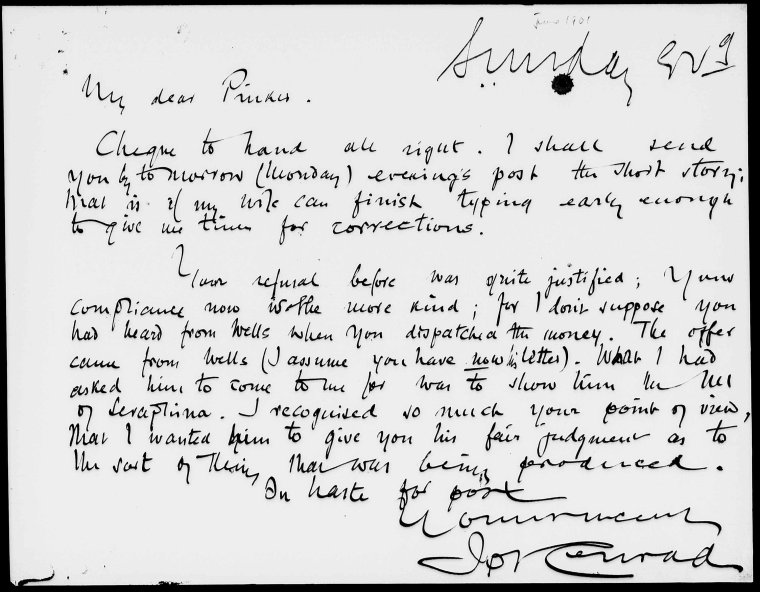 June 1901
Sunday Evg
My dear Pinker.
Cheque to hand all right. I shall send
you by to morrow (Monday) evening's post the short story;
that is if my wife can finish typing early enough
to give me time for corrections.
Your refusal before was quite justified; Your
compliance now is the more kind; for I don't suppose you
had heard from Wells when you dispatched the money. The offer
came from Wells (I assume you have now his letter). What I had
asked him to come to me for was to show him the MS
of Seraphina. I recognised so much your point of view,
that I wanted him to give you his fair judgment as to
the sort of thing that was being produced.
In haste for post
Yours
Jph Conrad